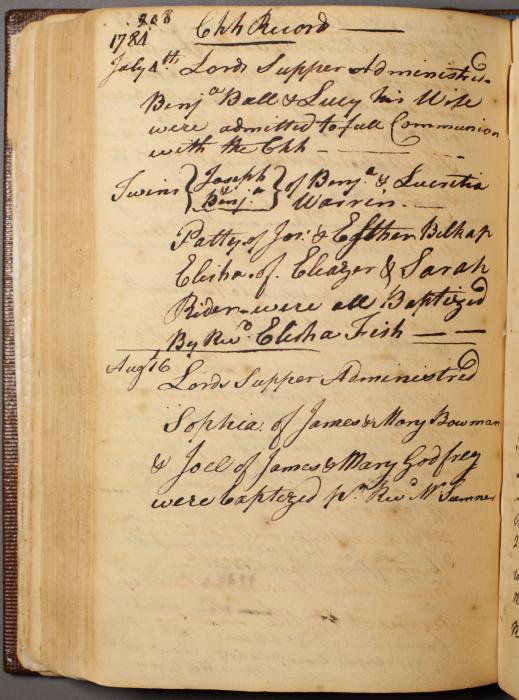 208
1784 Chh Record
July 4th Lords Supper Administred
Benja Ball & Lucy his Wife
were admitted to full Communion
with the Chh
Twins { Joseph & Benja } of Benja & Lucretia
Warrin.
Patty of Jos. & Esther Belkap
Elisha of Eleazer & Sarah
Rider were all Baptized
By Revd Elisha Fish
Augt 16
Lords Supper Administred
Sophia of James & Mary Bowman
& Joel of James & Mary Godfrey
were baptized pr Revd Mr Sumner